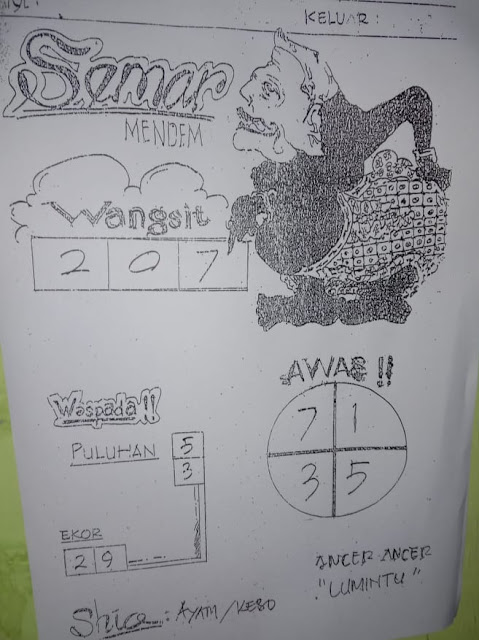 KELUAR :
Semar
MENDEM
Wangsit
2 0 7
AWAS !!
7 1
3 5
Waspada!!
PULUHAN 5
3
EKOR
2 9
ANCER ANCER
"LUMINTU"
Shio : AYAM / KEBO